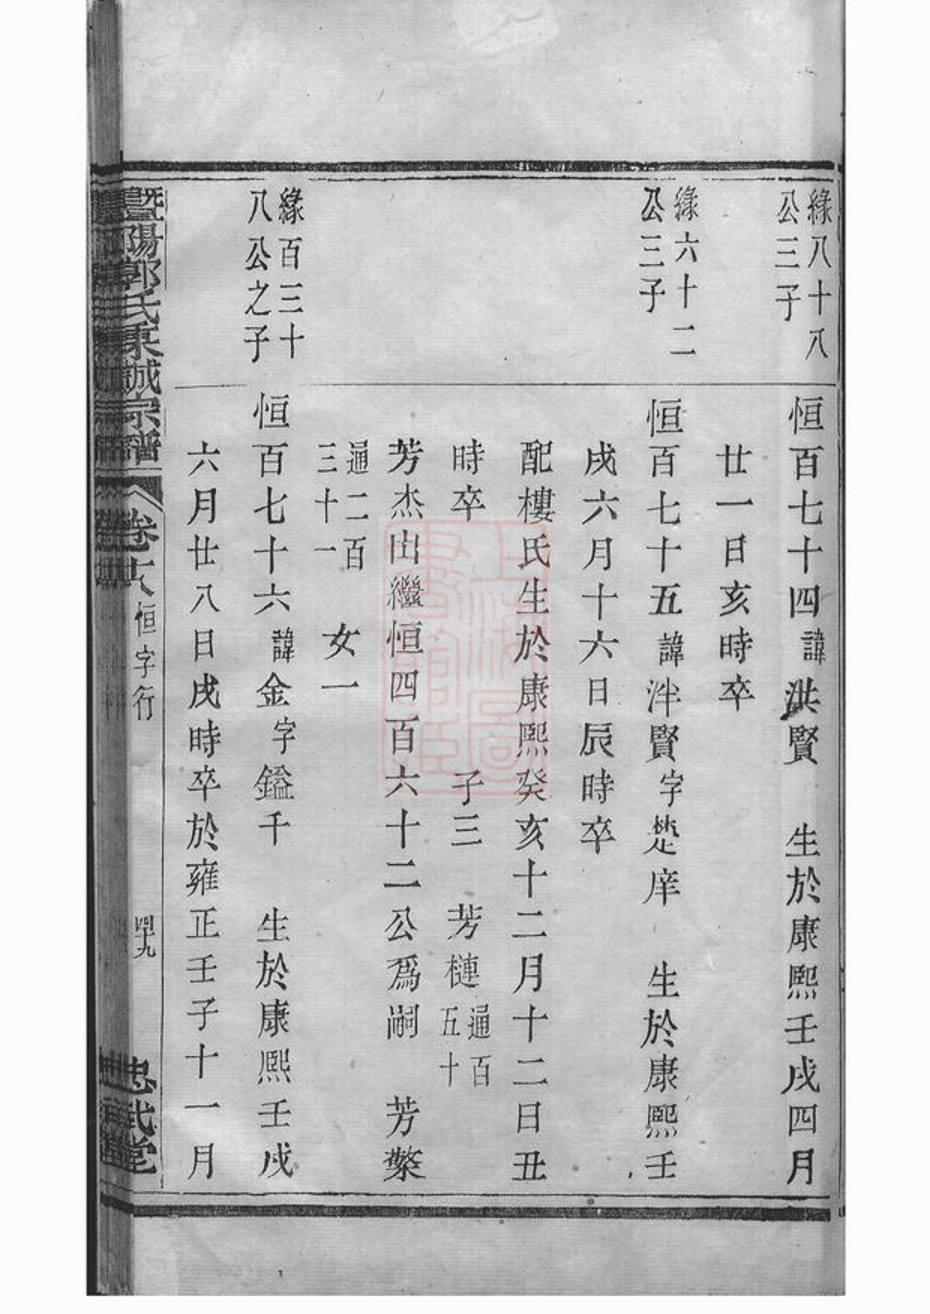 緣八十八
公三子
恒百七十四諱洪賢　生於康熙壬戌四月
廿一日亥時卒
緣六十二
公三子
恒百七十五諱泮賢字楚庠　生於康熙壬
戌六月十六日辰時卒
配樓氏生於康熙癸亥十二月十二日丑
時卒　子三　芳槤通百五十
芳杰出繼恒四百六十二公爲嗣　芳檠
通二百三十一　女一
緣百三十
八公之子
恒百七十六諱金字鎰千　生於康熙壬戌
六月廿八日戌時卒於雍正壬子十一月
暨陽郭氏秉誠宗譜
卷十八
恒字行
四九
忠武堂
上海圖書館藏